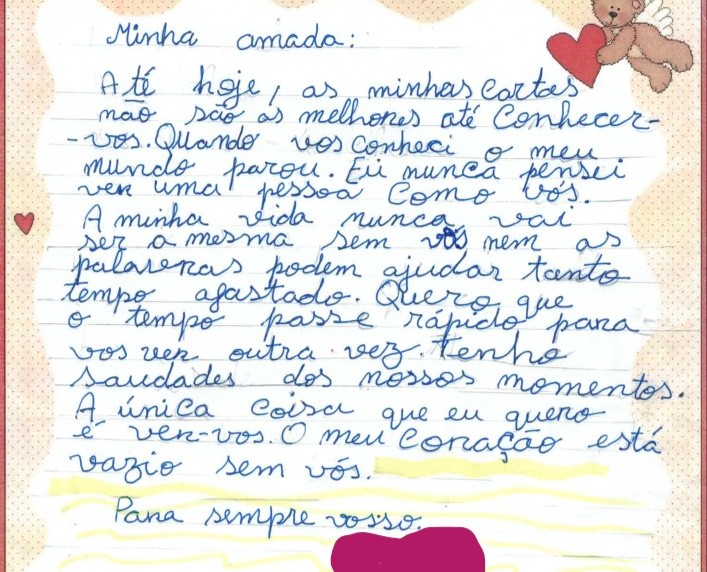 Minha amada:
Até hoje, as minhas cartas
não são as melhores até Conhecer-
-vos. Quando vos conheci o meu
mundo parou. Eu nunca pensei
ver uma pessoa como vós.
A minha vida nunca vai
ser a mesma sem vós nem as
palavras podem ajudar tanto
tempo afastado. Quero que
o tempo passe rápido para
vos ver outra vez. Tenho
saudades dos nossos momentos.
A única coisa que eu quero
é ver-vos. O meu coração está
vazio sem vós.
Para sempre vosso.